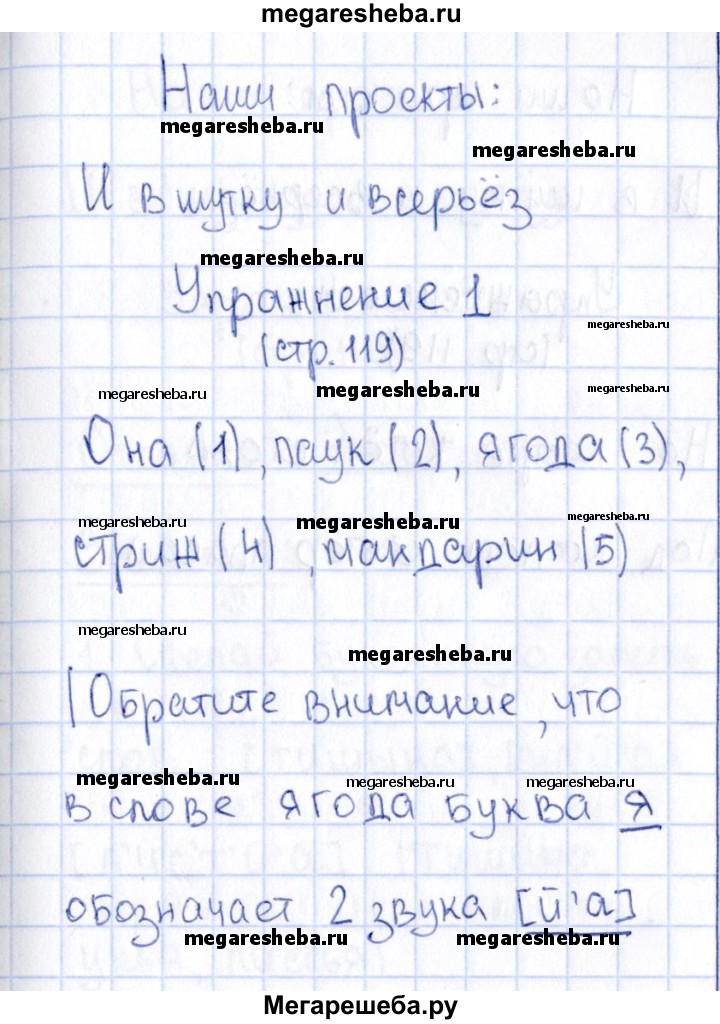 megaresheba.ru
Наши проекты:
megaresheba.ru
megaresheba.ru
И в шутку и всерьёз
megaresheba.ru
Упражнение 1
megaresheba.ru
(стр. 119)
megaresheba.ru
megaresheba.ru
megaresheba.ru
Она (1), паук (2), ягода (3),
megaresheba.ru
megaresheba.ru
megaresheba.ru
стриж (4), мандарин (5)
megaresheba.ru
megaresheba.ru
1) Обратите внимание, что
megaresheba.ru
megaresheba.ru
megaresheba.ru
в слове ягода буква я
обозначает 2 звука [й'а]
megaresheba.ru
megaresheba.ru
Мегарешеба.ру